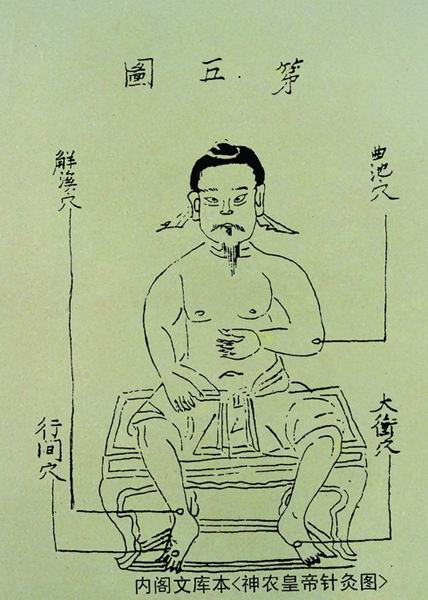 第五圖
曲池穴
大衝穴
解溪穴
行间穴
内阁文库本<神农皇帝针灸图>